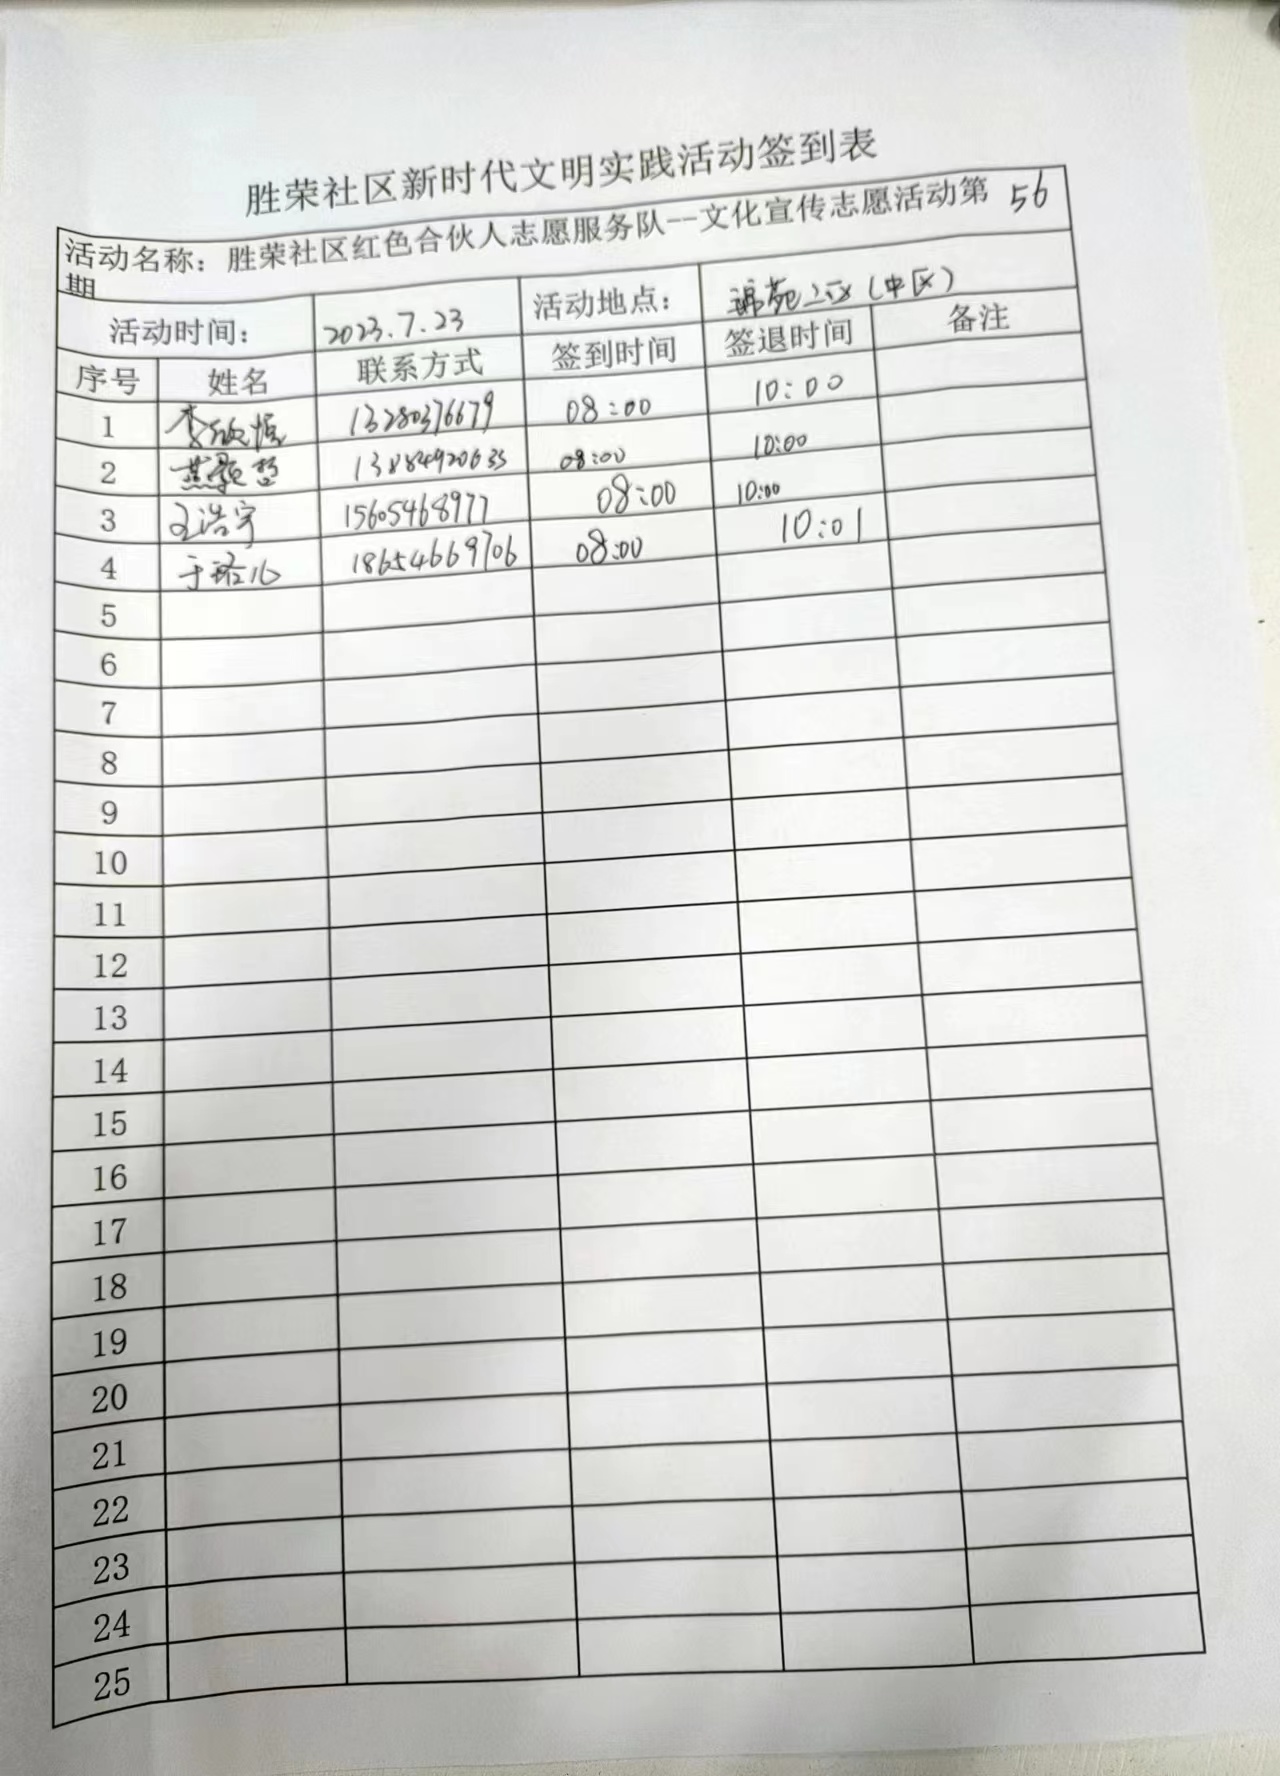 胜荣社区新时代文明实践活动签到表
活动名称：胜荣社区红色合伙人志愿服务队--文化宣传志愿活动第 56
期
活动时间： 2023.7.23 活动地点： 锦苑二区（中区）
序号 姓名 联系方式 签到时间 签退时间 备注
1 李 13280376679 08:00 10:00
2 燕 13884920633 08:00 10:00
3 王浩宇 15605468977 08:00 10:00
4 于 18654669706 08:00 10:01
5
6
7
8
9
10
11
12
13
14
15
16
17
18
19
20
21
22
23
24
25